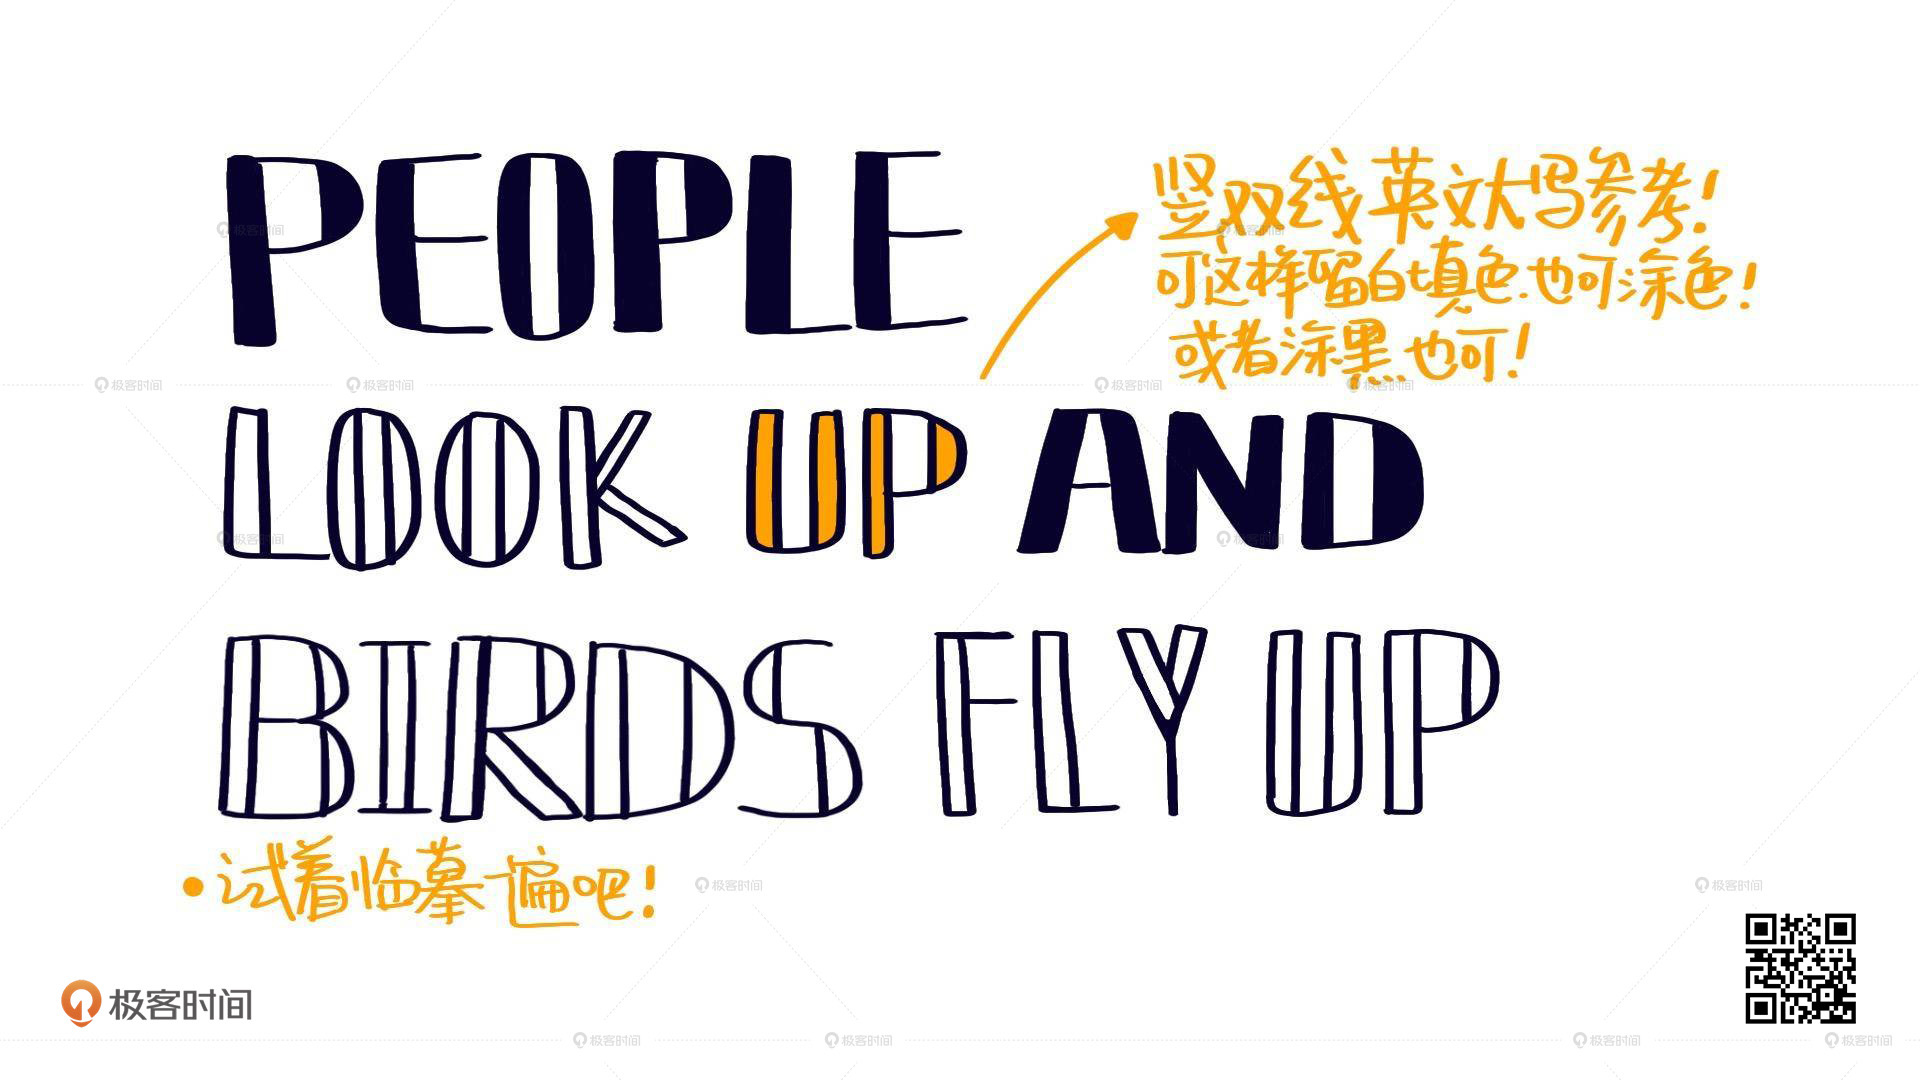 PEOPLE
竖双线英文大写参考!
可这样留白填色.也可涂色!
或者涂黑也可!
LOOK UP AND
BIRDS FLY UP
•试着临摹一遍吧!
极客时间